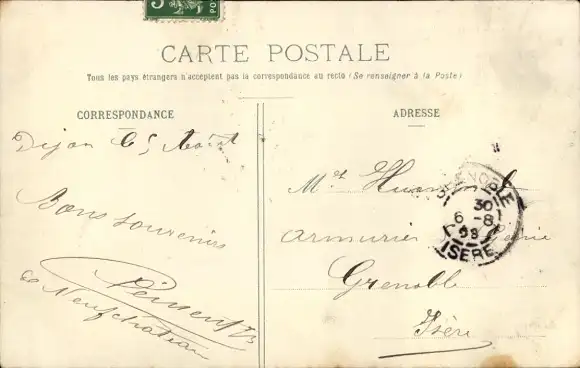 5
POS
CARTE POSTALE
Tous les pays étrangers n'acceptent pas la correspondance au recto (Se renseigner à la Poste)
CORRESPONDANCE
ADRESSE
Dijon le 5 Août
Bons souvenirs
de Neufchateau
Mr
armurier Génie
Grenoble
Isère
GRENOBLE
30
6 -8
08
ISERE